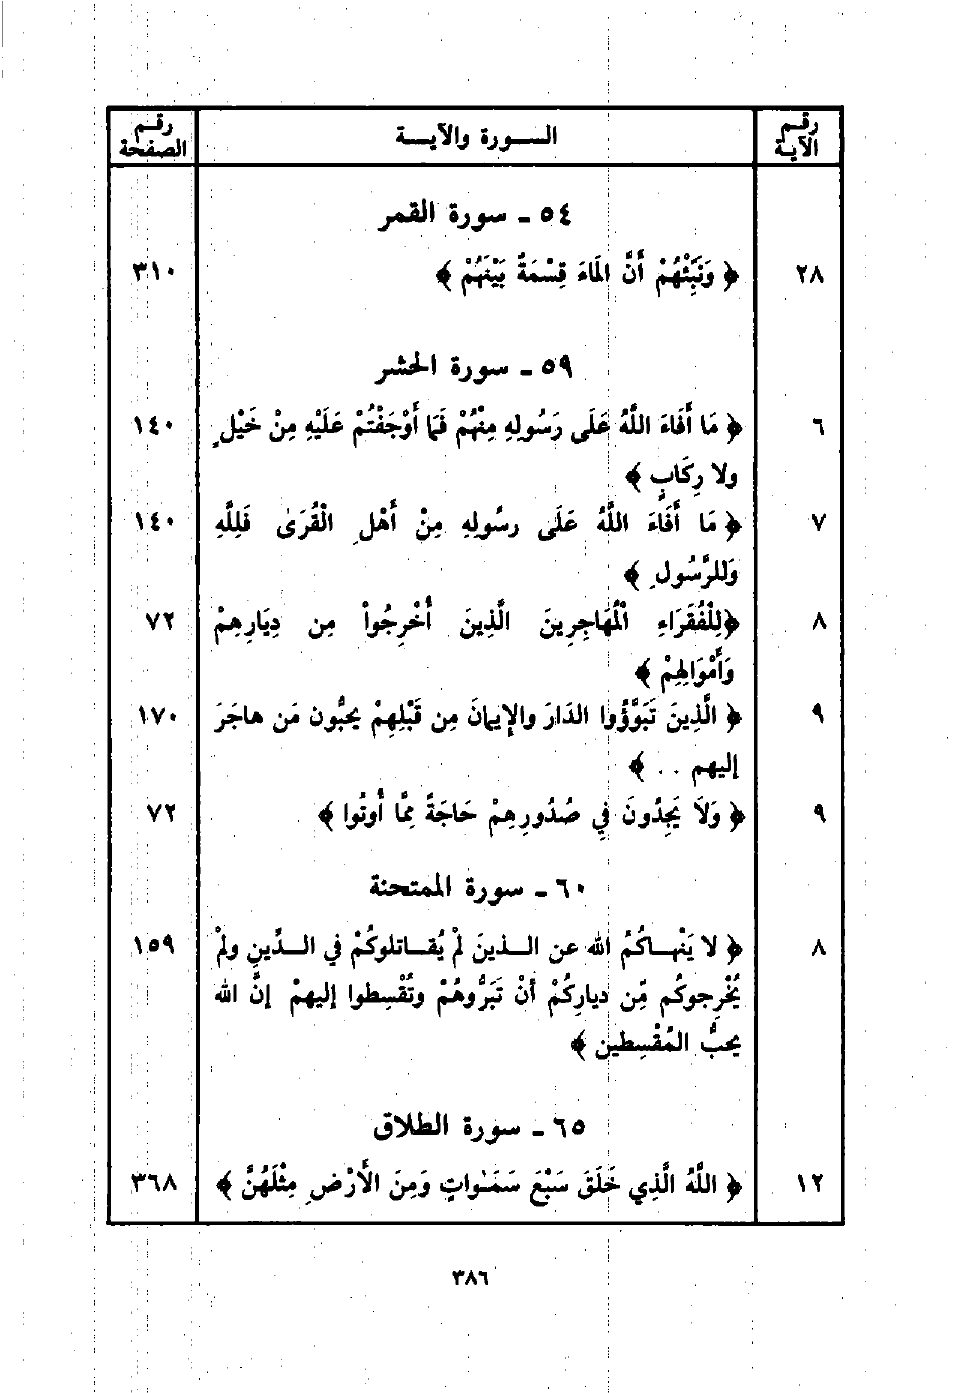 رقم الآية	السورة والآية	رقم الصفحة
٥٤ ـ سورة القمر
٢٨	﴿ وَنَبِّئْهُمْ أَنَّ المَاءَ قِسْمَةٌ بَيْنَهُمْ ﴾	٣١٠
٥٩ ـ سورة الحشر
٦	﴿ مَا أَفَاءَ اللَّهُ عَلَى رَسُولِهِ مِنْهُمْ فَمَا أَوْجَفْتُمْ عَلَيْهِ مِنْ خَيْلٍ	١٤٠
ولا رِكَابٍ ﴾
٧	﴿ مَا أَفَاءَ اللَّهُ عَلَى رسُولِهِ مِنْ أَهْلِ الْقُرَىٰ فَلِلَّهِ	١٤٠
وَللرَّسُولِ ﴾
٨	﴿لِلْفُقَرَاءِ الْمُهَاجِرِينَ الَّذِينَ أُخْرِجُواْ مِن دِيَارِهِمْ	٧٢
وَأَمْوَالِهِمْ ﴾
٩	﴿ الَّذِينَ تَبَوَّؤُوا الدَارَ والإيمانَ مِن قَبْلِهِمْ يحبُّون مَن هاجَرَ	١٧٠
إليهم . . ﴾
٩	﴿ وَلاَ يَجِدُونَ فِي صُدُورِهِمْ حَاجَةً مِمَّا أُوتُوا ﴾	٧٢
٦٠ ـ سورة الممتحنة
٨	﴿ لا يَنْهـاكُمُ الله عن الـذينَ لَمْ يُقـاتلوكُمْ في الـدِّينِ ولَمْ	١٥٩
يُخْرِجوكُم مِّن ديارِكُمْ أنْ تَبَرُّوهُمْ وتُقْسِطوا إليهِمْ إنَّ الله
يحبُّ المُقْسِطين ﴾
٦٥ ـ سورة الطلاق
١٢	﴿ اللَّهُ الَّذِي خَلَقَ سَبْعَ سَمَـٰواتٍ وَمِنَ الأَرْضِ مِثْلَهُنَّ ﴾	٣٦٨
٣٨٦